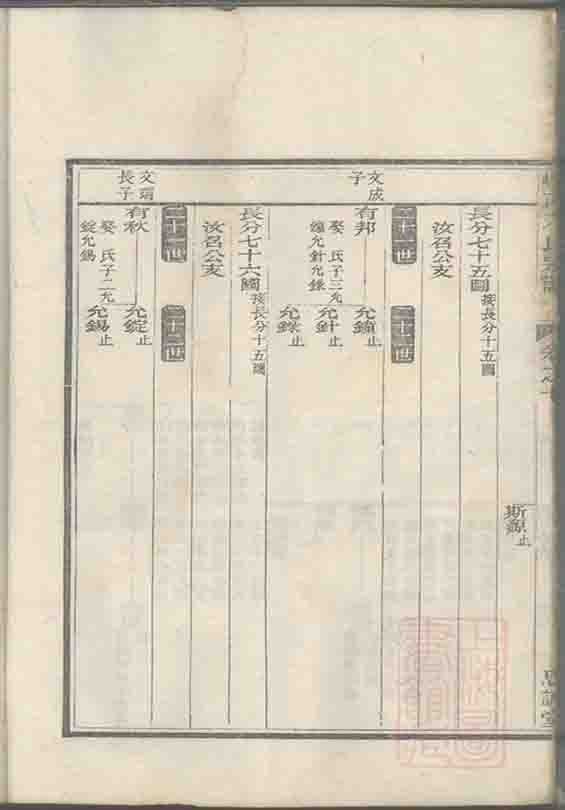 斯源止
長分七十五圖接長分十五圖
汝召公支
二十一世
二十二世
文成
子
有邦
娶 氏子三允
鐘允針允錄
允鐘止
允針止
允錄止
長分七十六圖接長分十五圖
汝召公支
二十一世
二十二世
文炳
長子
有秋
娶 氏子二允
錠允錫
允錠止
允錫止